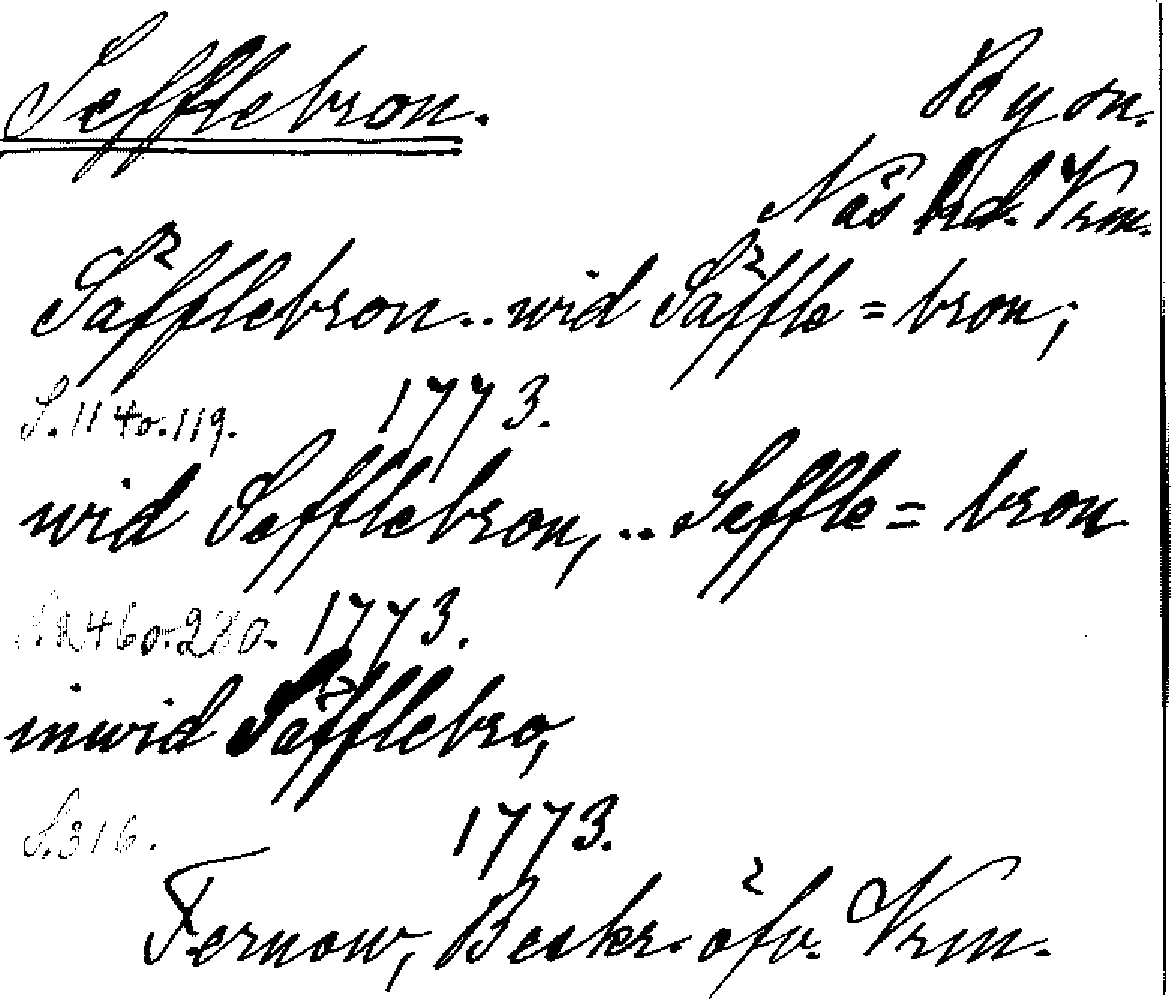 Sefflebron.
By sn.
Näs hd. Vrm.
Säfflebron.. wid Säffle=bron;
S. 114 o. 119. 1773.
wid Sefflebron,.. Seffle=bron
1773.
inwid Säfflebro,
S. 316. 1773.
Fernow, Beskr. öfv. Vrm.